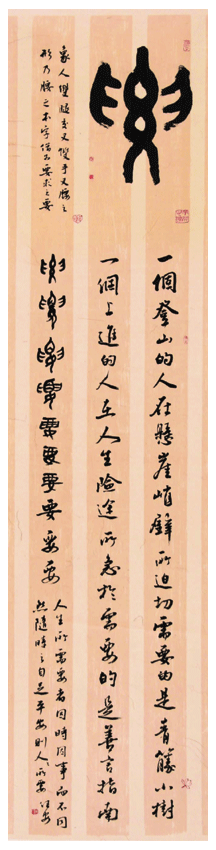 要
象人雙腿交叉雙手叉腰之
形乃腰之本字借為要求之要
一個登山的人在懸崖峭壁所迫切需要的是青藤小樹
一個上進的人在人生險途所急於需要的是善言指南
要要要要要要要要要要
人生所需要者因時因事而不同
然隨時之自足平安則人所要